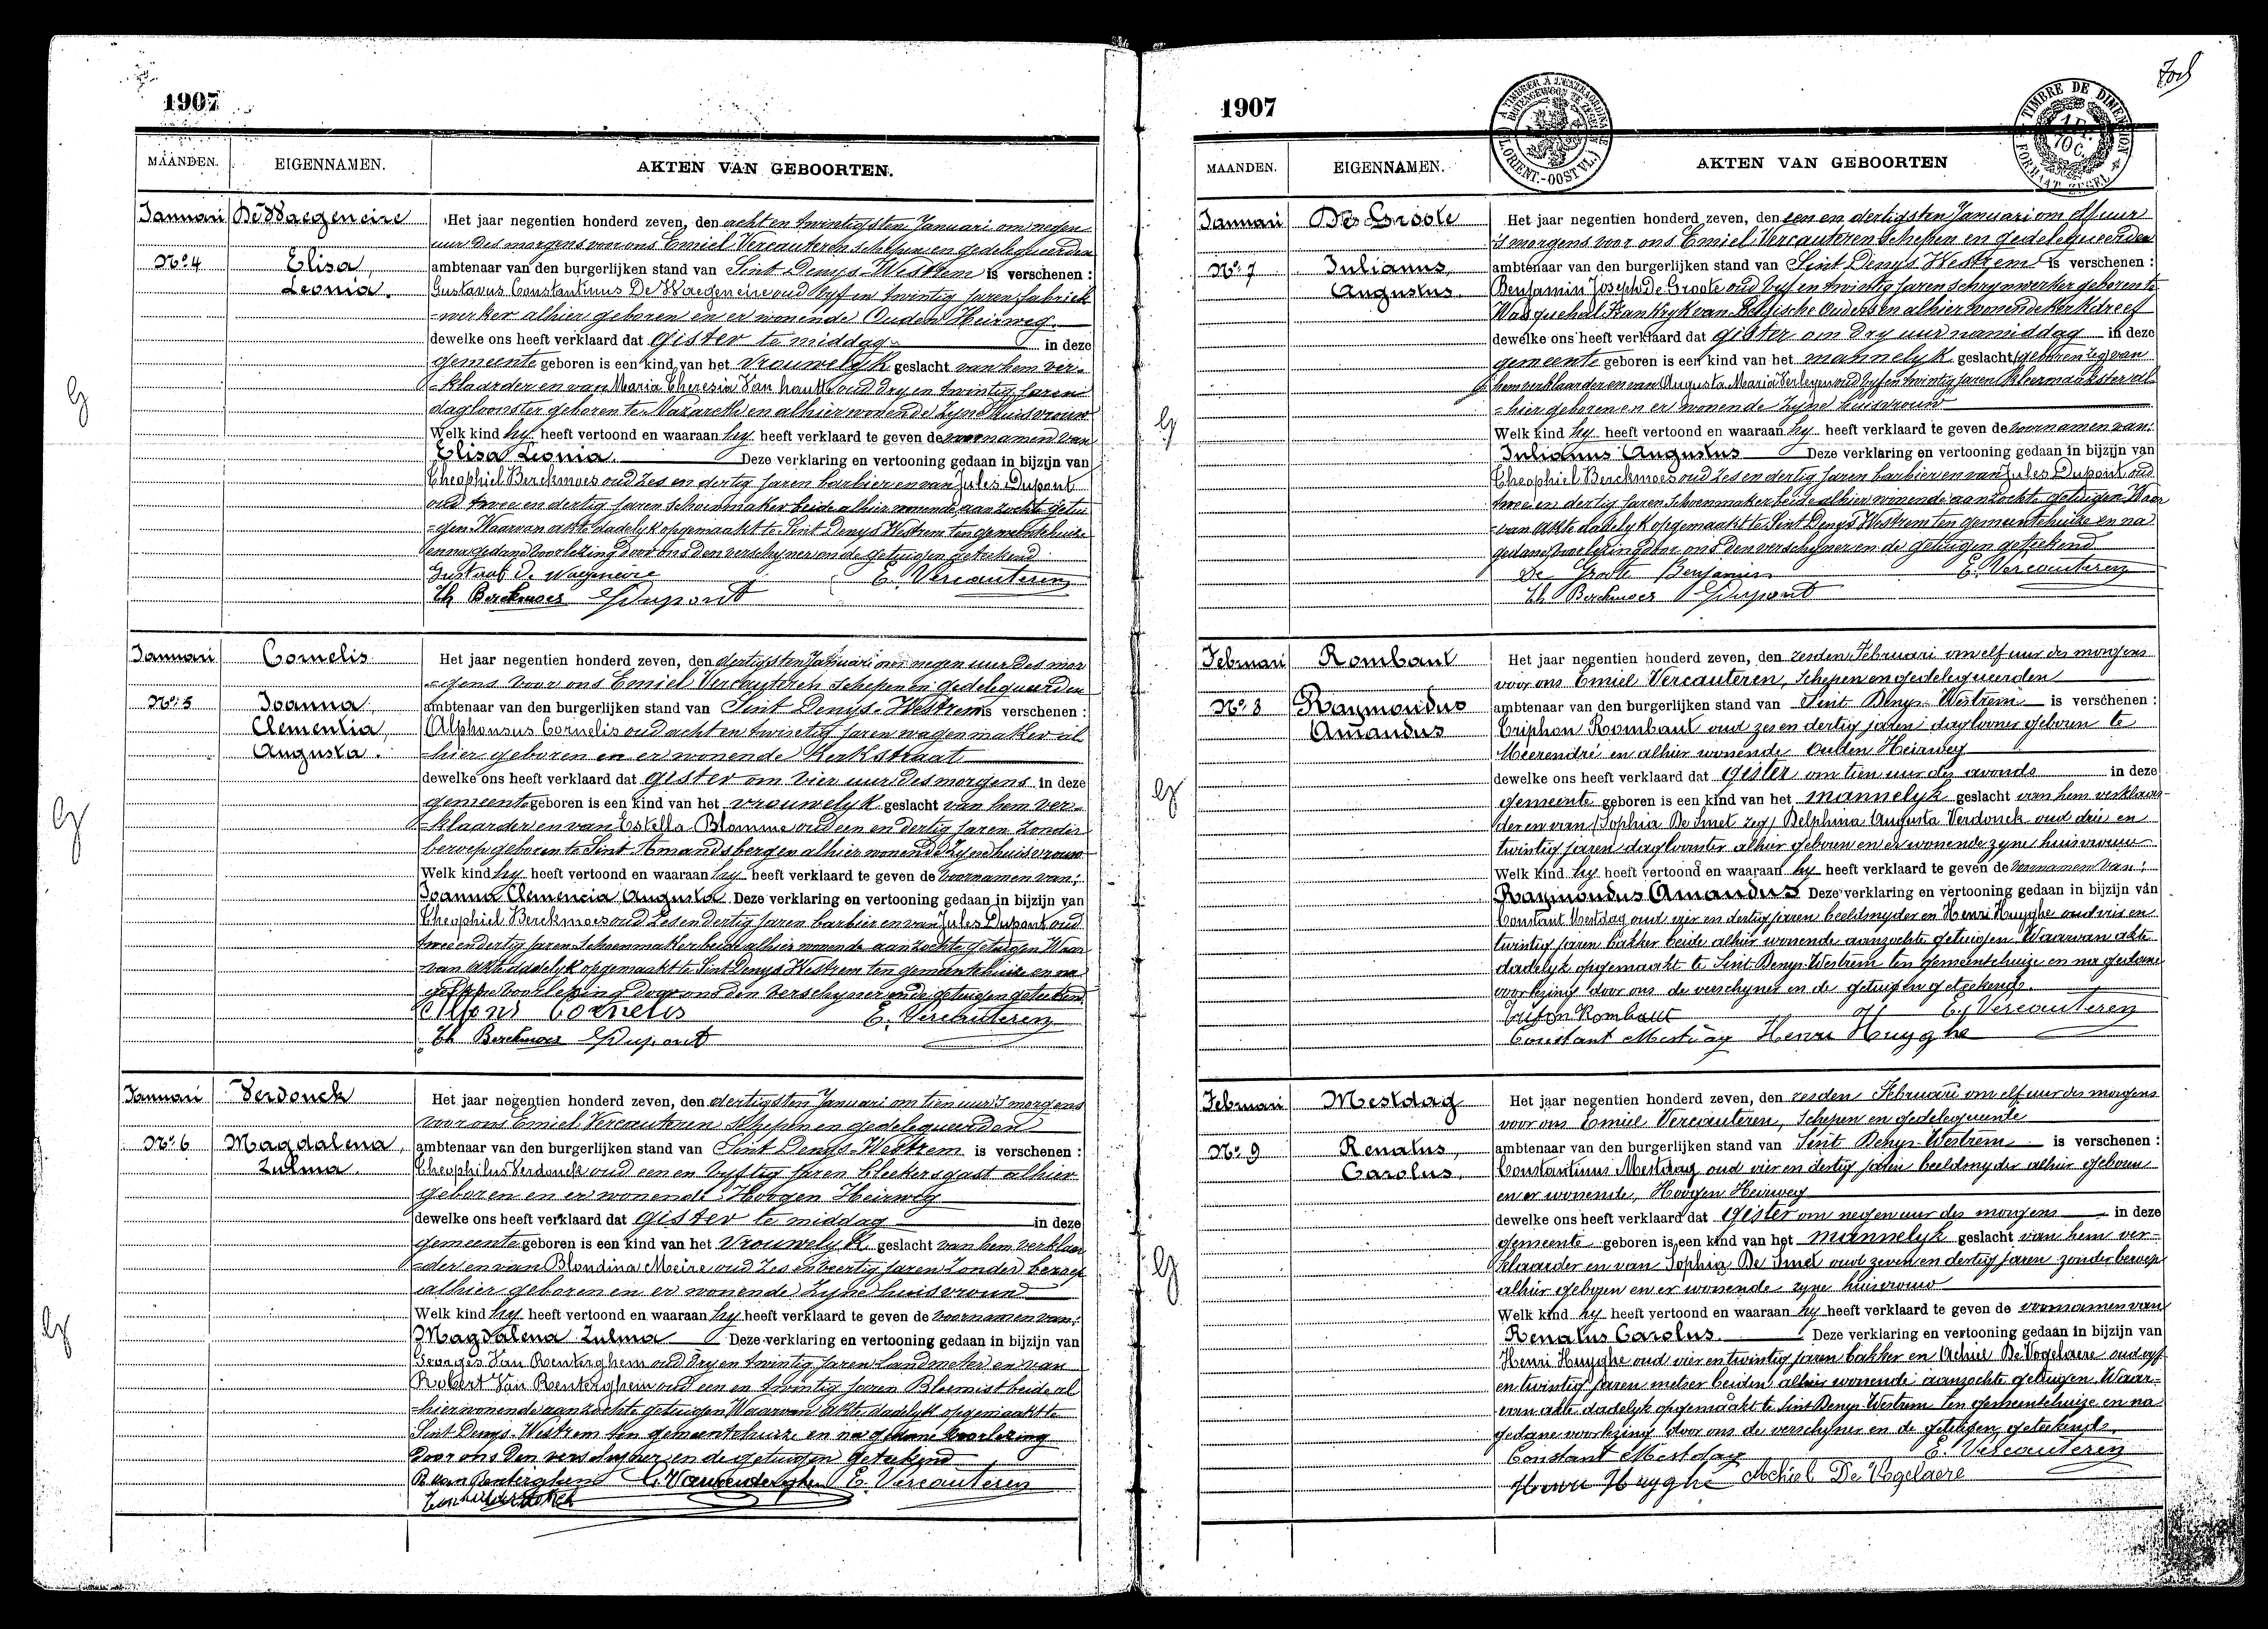 1907
MAANDEN. EIGENNAMEN. AKTEN VAN GEBOORTEN.
Januari De Waegeneire
No. 4 Elisa, Leonia.
Het jaar negentien honderd zeven, den acht en twintigsten Januari om negen
uur des morgens voor ons Emiel Vercauteren schepen en gedelegueerden
ambtenaar van den burgerlijken stand van Sint Denys-Westrem is verschenen :
Gustavus Constantinus De Waegeneire oud vyf en twintig jaren fabriek
-werker alhier geboren en er wonende Ouden Heirweg
dewelke ons heeft verklaard dat gister te middag in deze
gemeente geboren is een kind van het vrouwelyk geslacht van hem ver-
-klaarder en van Maria Theresia Van Houtte oud dry en twintig jaren
dagloonster geboren te Nazareth en alhier wonende zyne huisvrouw
Welk kind hy heeft vertoond en waaraan hy heeft verklaard te geven de voornamen van
Elisa Leonia. Deze verklaring en vertooning gedaan in bijzijn van
Theophiel Berckmoes oud zes en dertig jaren barbier en van Jules Dupont
oud twee en dertig jaren schoenmaker beide alhier wonende aanzochte getui
-gen Waarvan akte dadelyk opgemaakt te Sint Denys Westrem ten gemeentehuize
en na gedane voorlezing door ons den verschyner en de getuigen geteekend
Gustaaf De Waegeneire E. Vercauteren
Th Berckmoes Dupont
Januari Cornelis
No. 5 Joanna, Clementia, Augusta.
Het jaar negentien honderd zeven, den dertigsten Januari om negen uur des mor
-gens voor ons Emiel Vercauteren schepen en gedelegueerden
ambtenaar van den burgerlijken stand van Sint Denys-Westrem is verschenen :
Alphonsus Cornelis oud acht en twintig jaren wagenmaker al
-hier geboren en er wonende Kerkstraat
dewelke ons heeft verklaard dat gister om vier uur des morgens in deze
gemeente geboren is een kind van het vrouwelyk geslacht van hem ver-
-klaarder en van Estella Blomme oud een en dertig jaren zonder
beroep geboren te Sint Amandsberg en alhier wonende zyne huisvrouw
Welk kind hy heeft vertoond en waaraan hy heeft verklaard te geven de voornamen van:
Joanna Clemencia Augusta Deze verklaring en vertooning gedaan in bijzijn van
Theophiel Berckmoes oud zes en dertig jaren barbier en van Jules Dupont oud
twee en dertig jaren schoenmaker beide alhier wonende aanzochte getuigen Waar
-van akte dadelyk opgemaakt te Sint Denys Westrem ten gemeentehuize en na
gedane voorlezing door ons den verschyner en de getuigen geteekend
Alfons Cornelis E. Vercauteren
Th Berckmoes Dupont
Januari Verdonck
No. 6 Magdalena, Zulma.
Het jaar negentien honderd zeven, den dertigsten Januari om tien uur 's morgens
voor ons Emiel Vercauteren schepen en gedelegueerden
ambtenaar van den burgerlijken stand van Sint Denys-Westrem is verschenen :
Theophilus Verdonck oud een en vyftig jaren bleekersgast alhier
geboren en er wonende Hoogen Heirweg
dewelke ons heeft verklaard dat gister te middag in deze
gemeente geboren is een kind van het vrouwelyk geslacht van hem verklaar
-der en van Blondina Meire oud zes en veertig jaren zonder beroep
alhier geboren en er wonende zyne huisvrouw
Welk kind hy heeft vertoond en waaraan hy heeft verklaard te geven de voornamen van:
Magdalena Zulma Deze verklaring en vertooning gedaan in bijzijn van
Georges Van Renterghem oud dry en twintig jaren Landmeter en van
Robert Van Renterghem oud een en twintig jaren Bloemist beide al
-hier wonende aanzochte getuigen Waarvan akte dadelyk opgemaakt te
Sint Denys-Westrem ten gemeentehuize en na gedane voorlezing
door ons den verschyner en de getuigen geteekend
R. van Renterghem G. Vanrenterghem E. Vercauteren
1907
A TIMBRER A L'EXTRAORDINAIRE
BUITENGEWOON TE ZEGELEN
(FL. ORIENT.-OOST VL.)
TIMBRE DE DIMENSION
FORMAAT ZEGEL
MAANDEN. EIGENNAMEN. AKTEN VAN GEBOORTEN
Januari De Groote
No. 7 Julianus, Augustus.
Het jaar negentien honderd zeven, den een en dertigsten Januari om elf uur
's morgens voor ons Emiel Vercauteren schepen en gedelegueerden
ambtenaar van den burgerlijken stand van Sint Denys Westrem is verschenen :
Benjamin Joseph De Groote oud vyf en twintig jaren schrynwerker geboren te
Wasquehal Frankryk van Belgische Ouders en alhier wonende Kerkdreef
dewelke ons heeft verklaard dat gister om dry uur namiddag in deze
gemeente geboren is een kind van het mannelyk geslacht (geboren zeg) van
hem verklaarder en van Augusta Maria Verleyen oud vyf en twintig jaren kleermaakster al
-hier geboren en er wonende zyne huisvrouw
Welk kind hy heeft vertoond en waaraan hy heeft verklaard te geven de voornamen van:
Julianus Augustus Deze verklaring en vertooning gedaan in bijzijn van
Theophiel Berckmoes oud zes en dertig jaren barbier en van Jules Dupont oud
twee en dertig jaren schoenmaker beide alhier wonende aanzochte getuigen Waar
-van akte dadelyk opgemaakt te Sint Denys Westrem ten gemeentehuize en na
gedane voorlezing door ons den verschyner en de getuigen geteekend
De Groote Benjamin E. Vercauteren
Th Berckmoes Dupont
Februari Rombaut
No. 8 Raymondus Amandus
Het jaar negentien honderd zeven, den zesden Februari om elf uur des morgens
voor ons Emiel Vercauteren, schepen en gedelegueerden
ambtenaar van den burgerlijken stand van Sint Denys-Westrem is verschenen :
Triphon Rombaut oud zes en dertig jaren dagloner geboren te
Meerendré en alhier wonende Ouden Heirweg
dewelke ons heeft verklaard dat gister om tien uur des avonds in deze
gemeente geboren is een kind van het mannelyk geslacht van hem verklaar-
der en van (Sophia De Smet zeg) Delphina Augusta Verdonck oud drie en
twintig jaren dagloonster alhier geboren en er wonende zyne huisvrouw
Welk kind hy heeft vertoond en waaraan hy heeft verklaard te geven de voornamen van:
Raymondus Amandus Deze verklaring en vertooning gedaan in bijzijn van
Constant Mestdag oud vier en dertig jaren beeldsnyder en Henri Huyghe oud vier en
twintig jaren bakker beide alhier wonende aanzochte getuigen Waarvan akte
dadelyk opgemaakt te Sint Denys-Westrem ten gemeentehuize en na gedane
voorlezing door ons de verschyner en de getuigen geteekend.
Trifon Rombaut E. Vercauteren
Constant Mestdag Henri Huyghe
Februari Mestdag
No. 9 Renatus, Carolus.
Het jaar negentien honderd zeven, den zesden Februari om elf uur des morgens
voor ons Emiel Vercauteren, schepen en gedelegueerde
ambtenaar van den burgerlijken stand van Sint Denys-Westrem is verschenen :
Constantinus Mestdag oud vier en dertig jaren beeldsnyder alhier geboren
en er wonende, Hoogen Heirweg
dewelke ons heeft verklaard dat gister om negen uur des morgens in deze
gemeente geboren is een kind van het mannelyk geslacht van hem ver-
klaarder en van Sophia De Smet oud zeven en dertig jaren zonder beroep
alhier geboren en er wonende zyne huisvrouw
Welk kind hy heeft vertoond en waaraan hy heeft verklaard te geven de voornamen van
Renatus Carolus. Deze verklaring en vertooning gedaan in bijzijn van
Henri Huyghe oud vier en twintig jaren bakker en Achiel De Vogelaere oud vyf
en twintig jaren metser beiden alhier wonende aanzochte getuigen. Waar-
van akte dadelyk opgemaakt te Sint Denys-Westrem ten gemeentehuize en na
gedane voorlezing door ons de verschyner en de getuigen geteekend.
Constant Mestdag E. Vercauteren
Henri Huyghe Achiel De Vogelaere